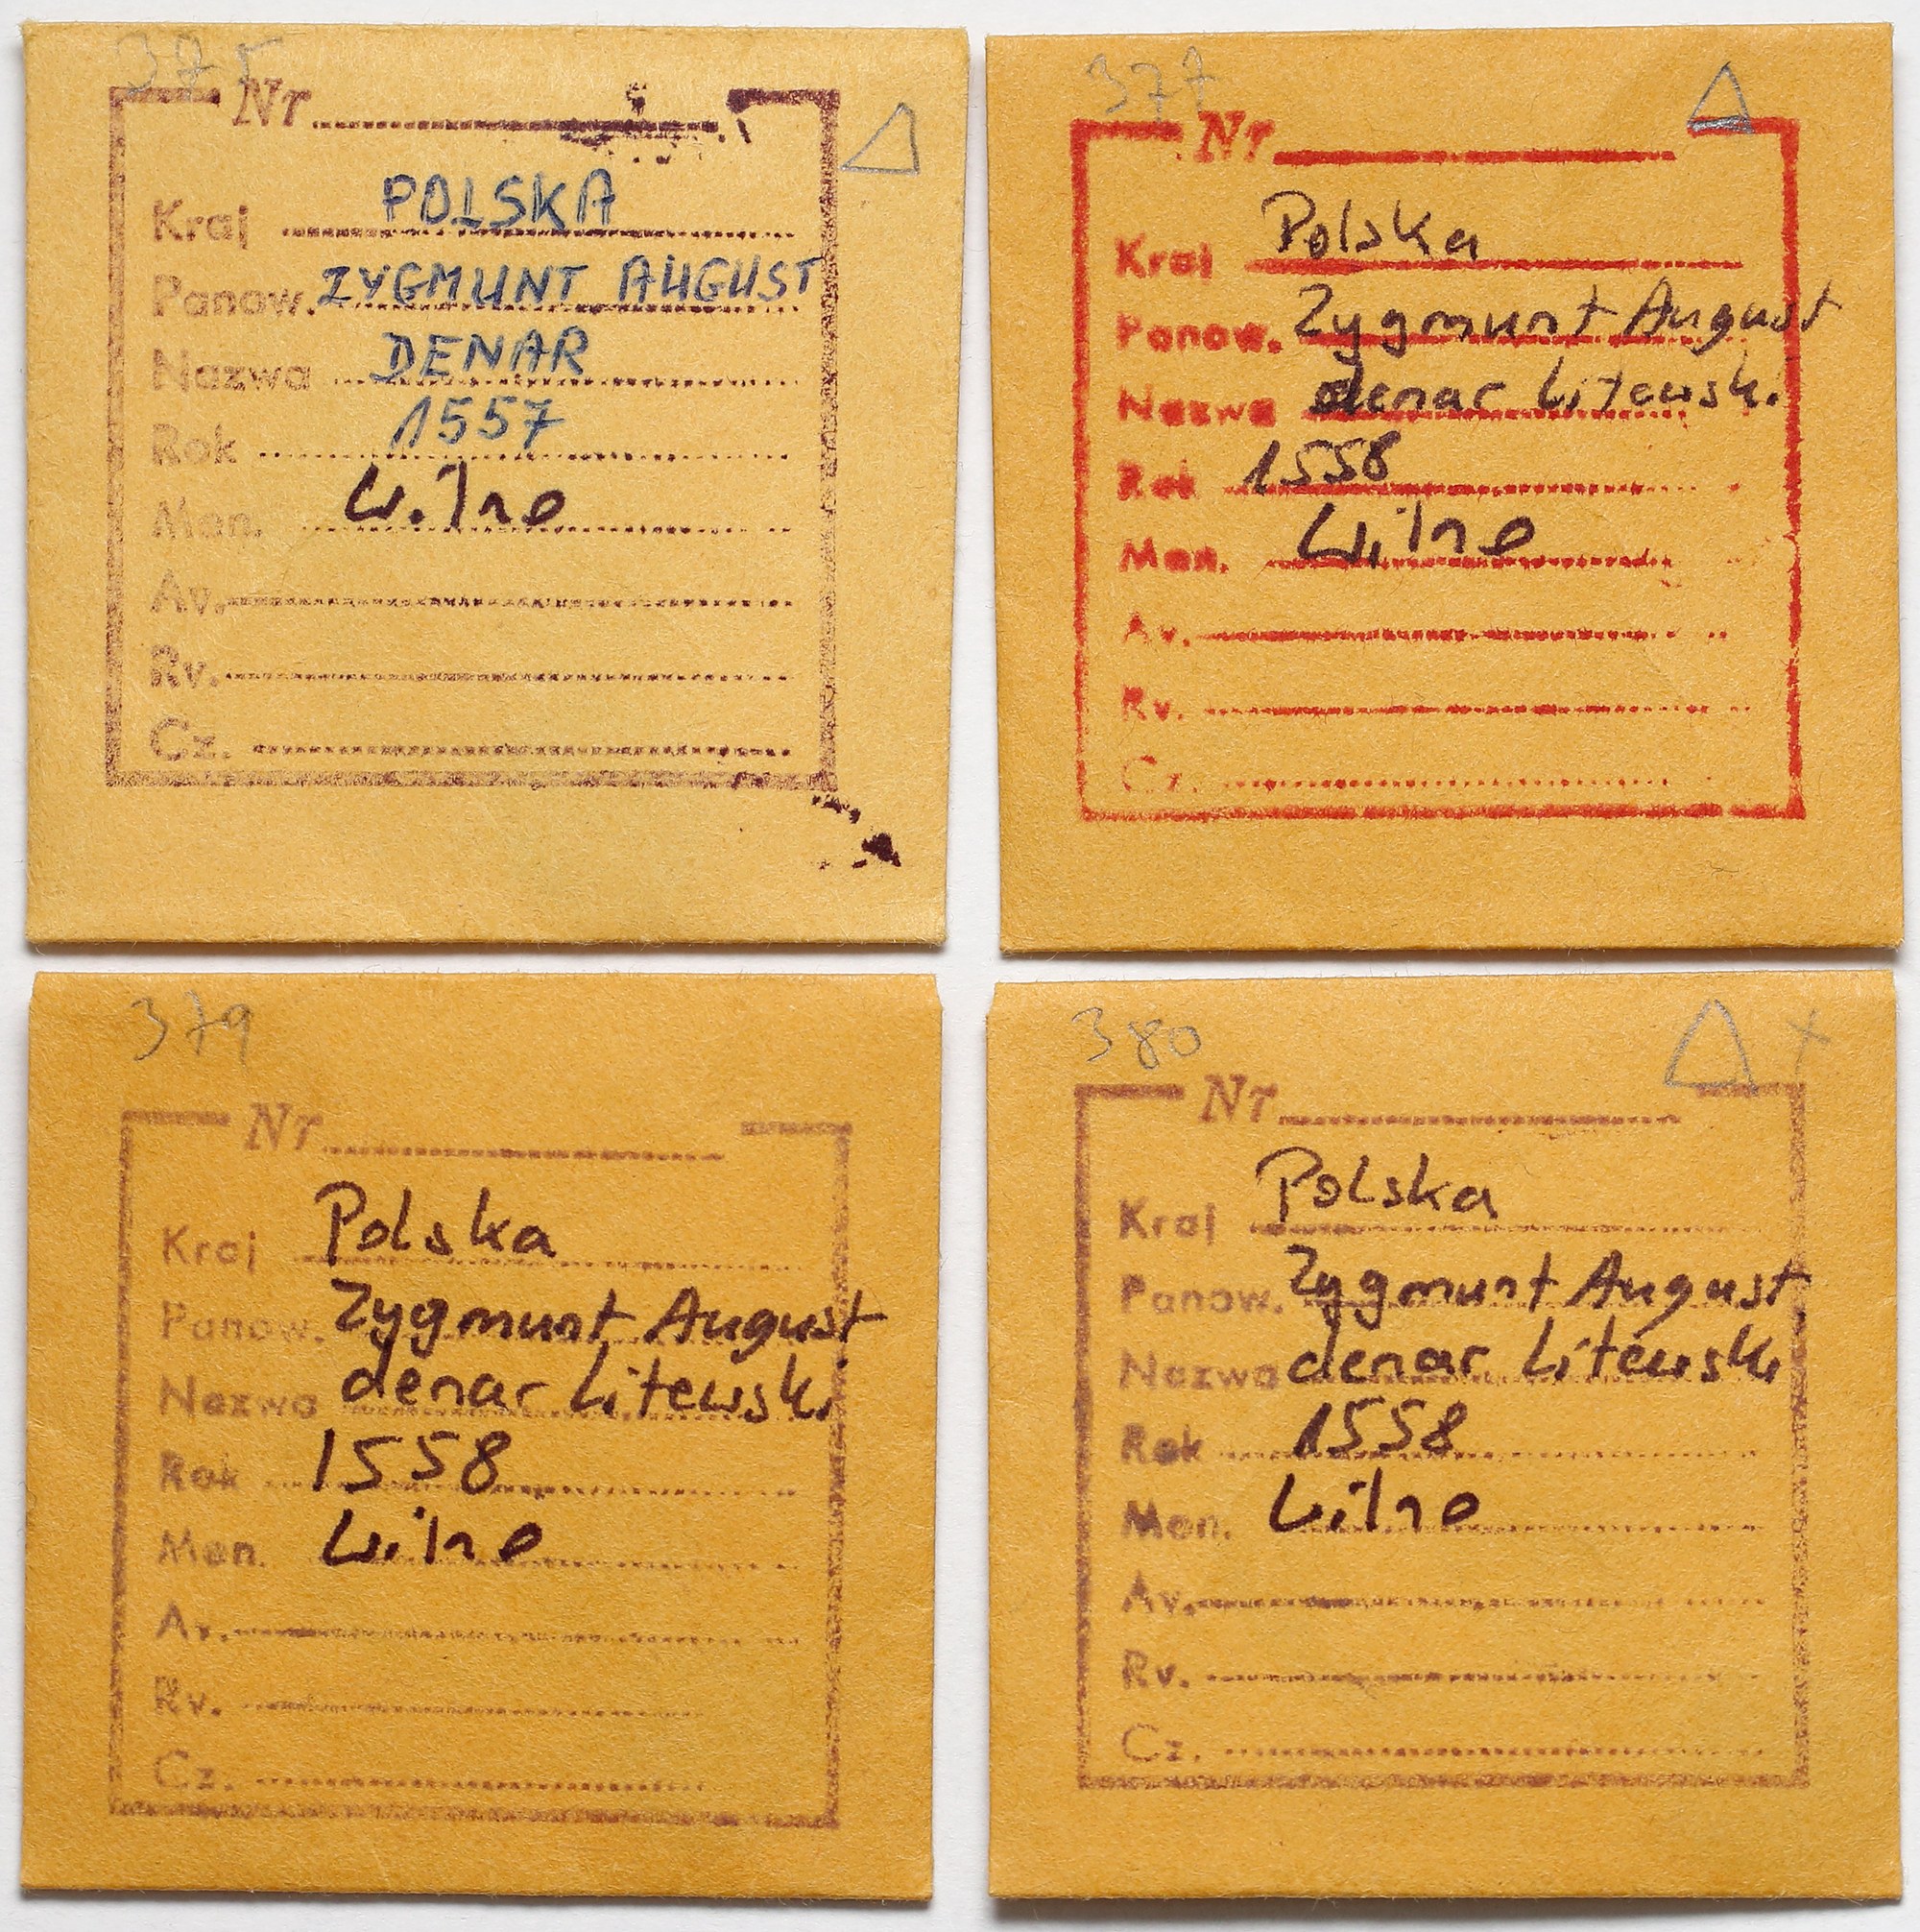 375
Nr
Kraj POLSKA
Panow. ZYGMUNT AUGUST
Nazwa DENAR
Rok 1557
Men. Wilno
Av.
Rv.
Cz.
377
Nr
Kraj Polska
Panow. Zygmunt August
Nazwa denar Litewski
Rok 1558
Men. Wilno
Av.
Rv.
Cz.
379
Nr
Kraj Polska
Panow. Zygmunt August
Nazwa denar Litewski
Rok 1558
Men. Wilno
Av.
Rv.
Cz.
380 x
Nr
Kraj Polska
Panow. Zygmunt August
Nazwa denar Litewski
Rok 1558
Men. Wilno
Av.
Rv.
Cz.